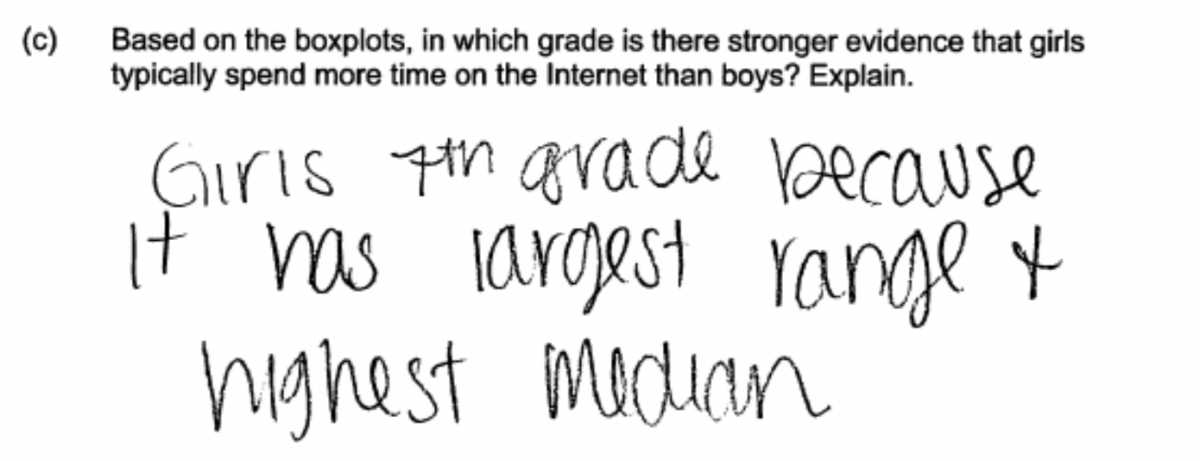 (c) Based on the boxplots, in which grade is there stronger evidence that girls
typically spend more time on the Internet than boys? Explain.
Girls 7th grade because
It has largest range &
highest median